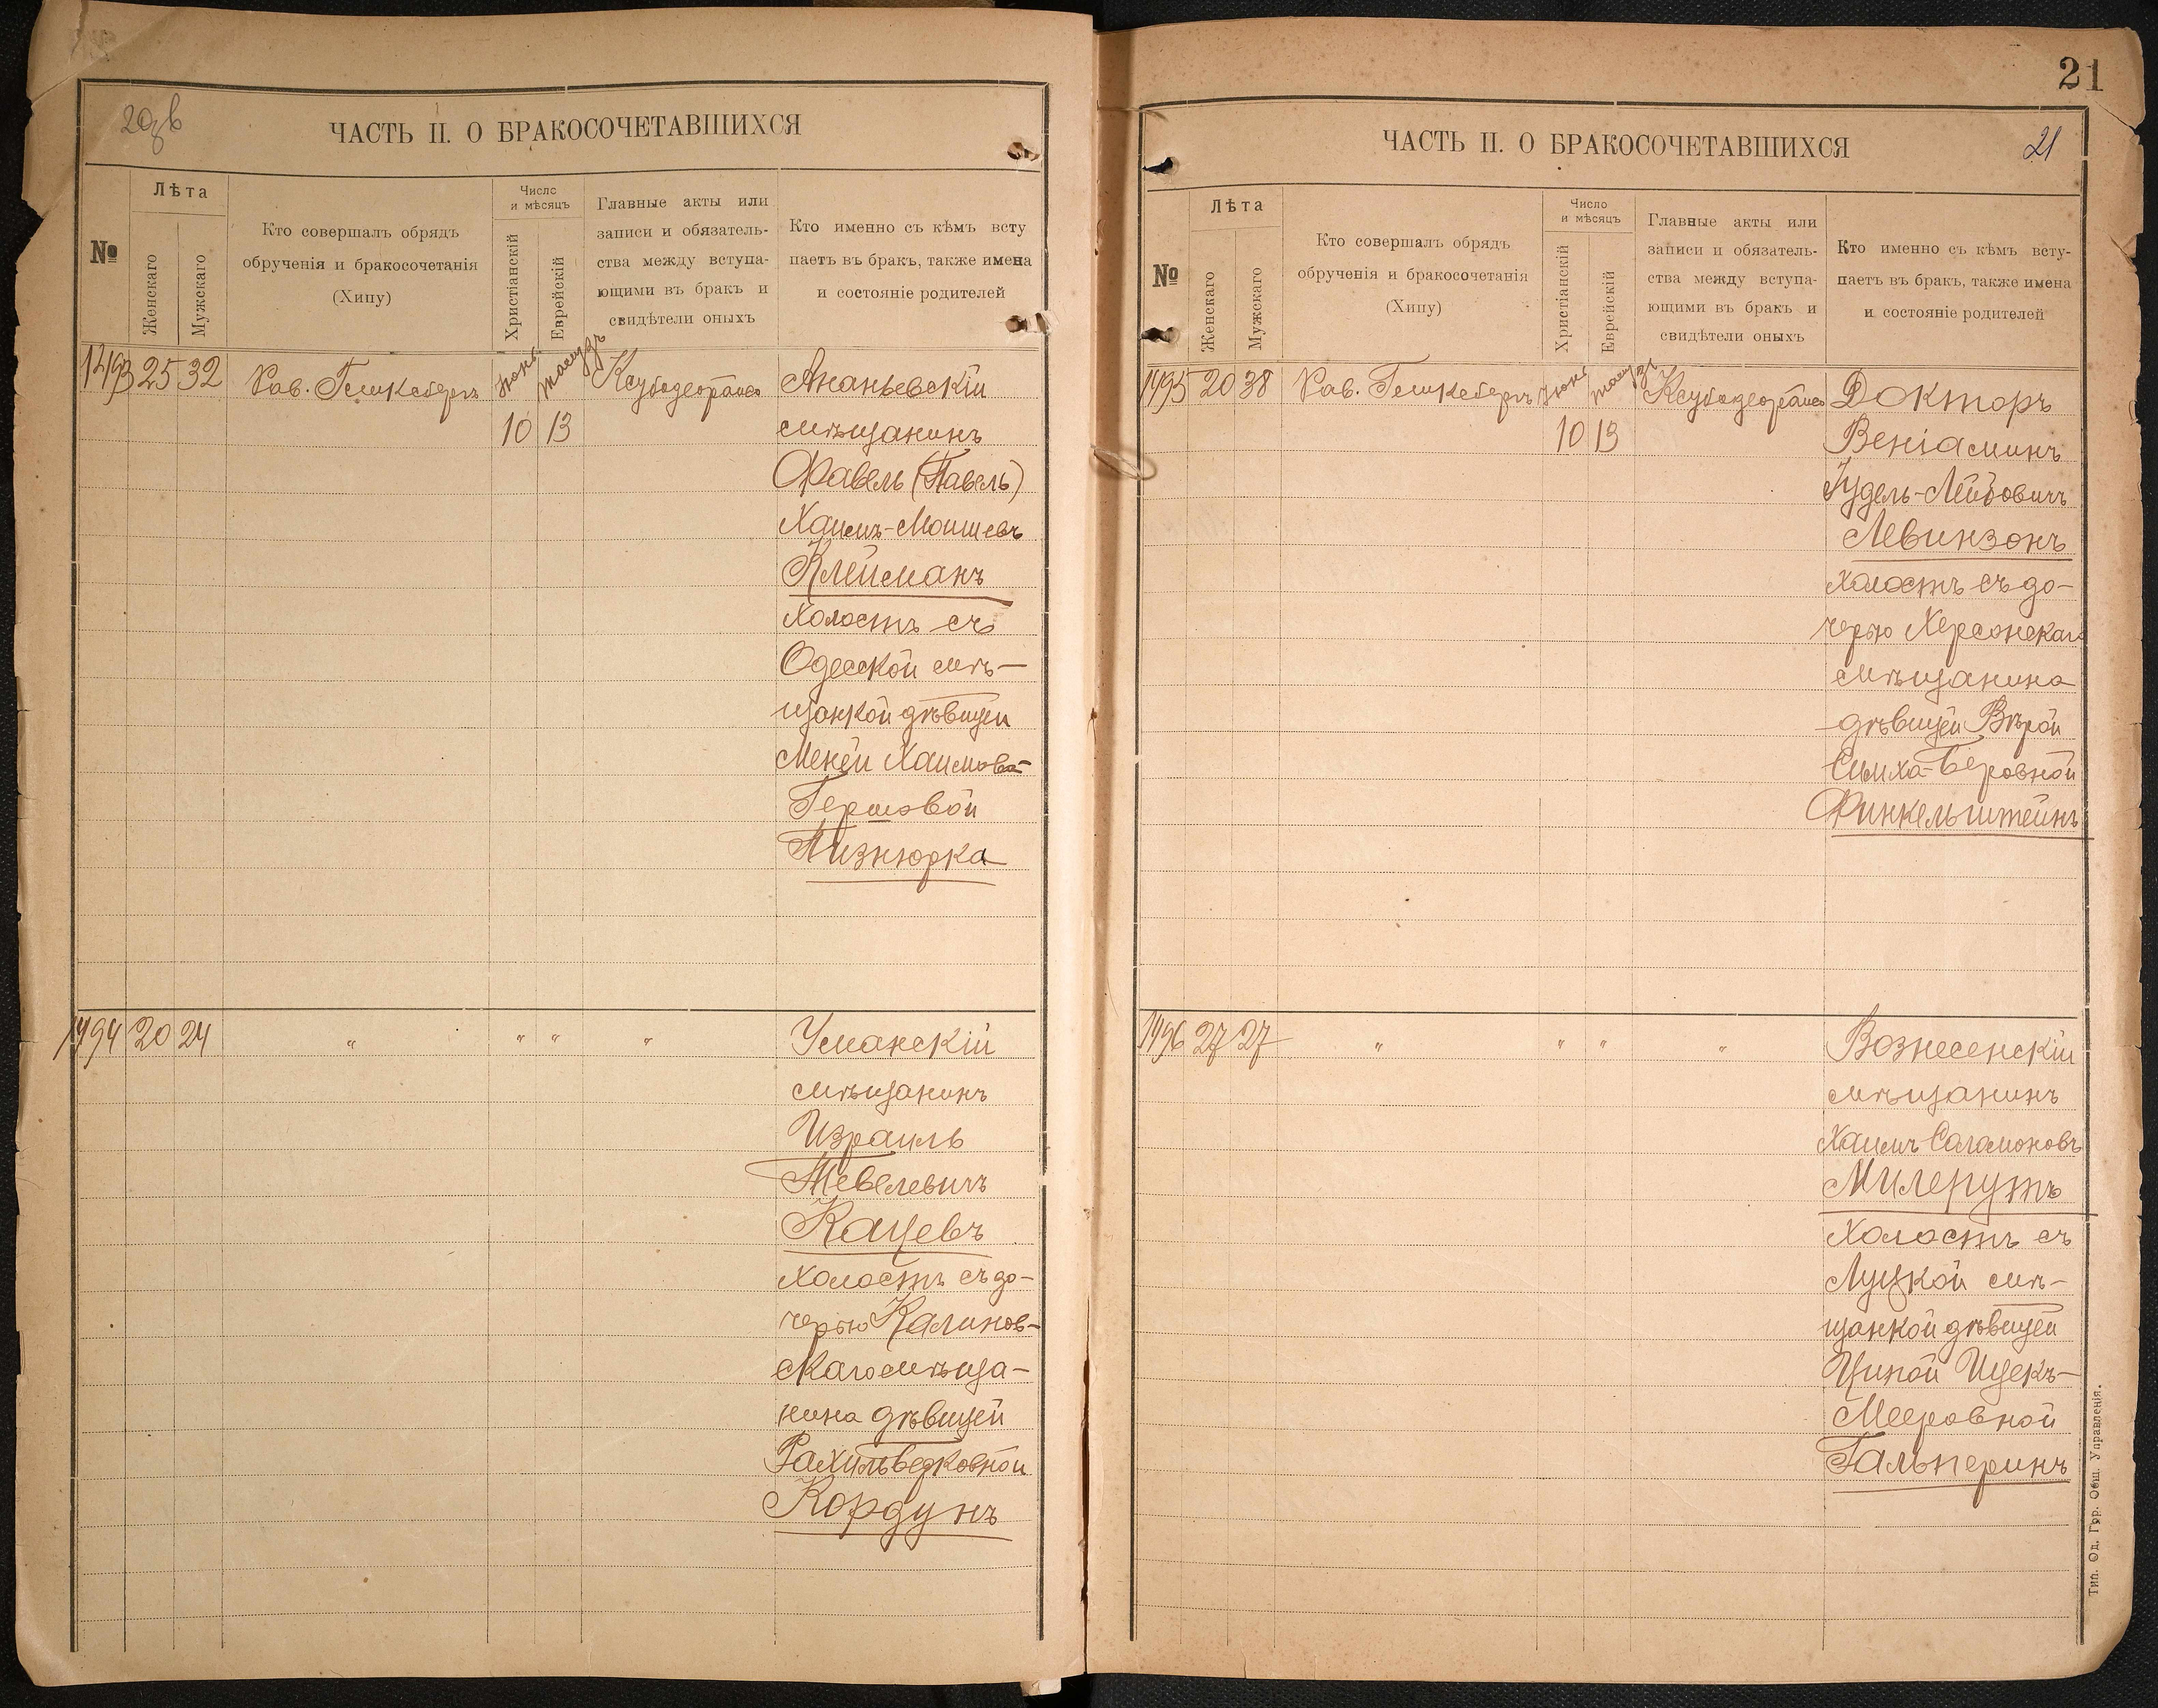 20
ЧАСТЬ II. О БРАКОСОЧЕТАВШИХСЯ
№
Лѣта
Женскаго
Мужскаго
Кто совершалъ обрядъ
обрученія и бракосочетанія
(Хипу)
Число
и мѣсяцъ
Христіанскій
Еврейскій
Главные акты или
записи и обязатель-
ства между вступа-
ющими въ бракъ и
свидѣтели оныхъ
Кто именно съ кѣмъ всту
паетъ въ бракъ, также имена
и состояніе родителей
25 32
Рав.
10 13
Ананьевскій
мѣщанинъ
Фавель (Павель)
Хаимъ-Моишевъ
Клейманъ
холостъ съ
Одесской мѣ-
щанкой дѣвицей
Меней Хаимова-
Гершовой
Пизнюрка
20 24 " " " "
Уманскій
мѣщанинъ
Израиль
Тевелевичъ
Кацевъ
холостъ съ до-
черью Калинов-
скаго мѣща-
нина дѣвицей
Рахиль
Кордунъ
21
ЧАСТЬ II. О БРАКОСОЧЕТАВШИХСЯ
21
№
Лѣта
Женскаго
Мужскаго
Кто совершалъ обрядъ
обрученія и бракосочетанія
(Хипу)
Число
и мѣсяцъ
Христіанскій
Еврейскій
Главные акты или
записи и обязатель-
ства между вступа-
ющими въ бракъ и
свидѣтели оныхъ
Кто именно съ кѣмъ всту-
паетъ въ бракъ, также имена
и состояніе родителей
20 38
Рав.
10 13
Докторъ
Веніаминъ
Іудель-Лейбовичъ
Левинзонъ
холостъ съ до-
черью Херсонскаго
мѣщанина
дѣвицей Вѣрой
Симха-Беровной
Финкельштейнъ
27 27 " " " "
Вознесенскій
мѣщанинъ
Хаимъ Саламоновъ
Милерутъ
холостъ съ
Луцкой мѣ-
щанкой дѣвицей
Ципой Ицекъ-
Мееровной
Гальперинъ
Тип. Од. Гор. Общ. Управленія.